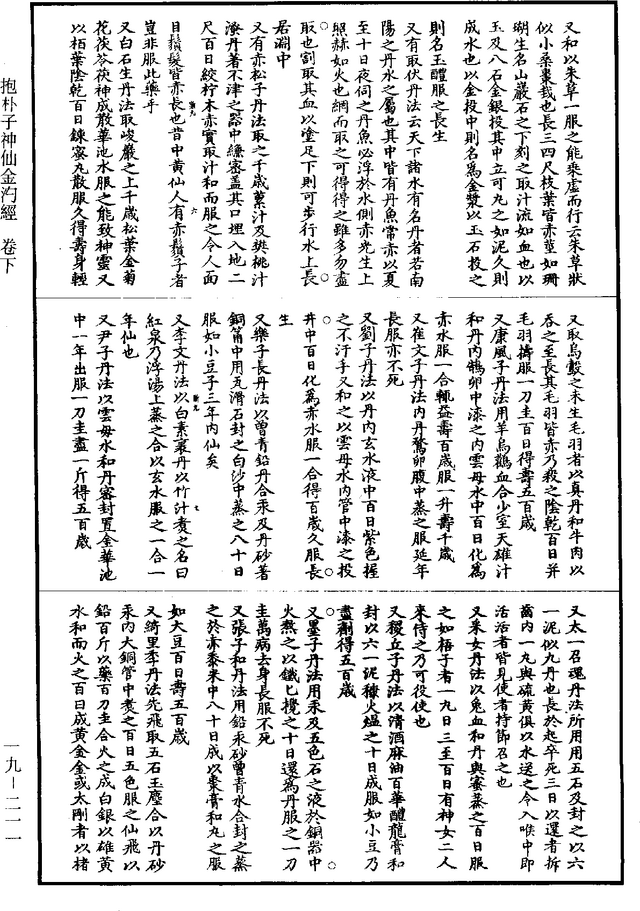 抱朴子神仙金汋經 卷下
一九－二一一
又和以朱草一服之能乘虛而行云朱草狀
似小桑棗栽也長三四尺枝葉皆赤莖如珊
瑚生名山巖石之下刻之取汁流如血也以
玉及八石金銀投其中立可丸之如泥久則
成水也以金投中則名爲金漿以玉石投之
則名玉醴服之長生
又有取伏丹法云天下諸水有名丹者若南
陽之丹水之屬也其中皆有丹魚常赤以夏
至十日夜伺之丹魚必浮於水側赤光生上
照赫如火也網而取之可得得之雖多勿盡
取也割取其血以塗足下則可步行水上長
居淵中
又有赤松子丹法取之千歲蔂汁及礬桃汁
漬丹著不津之器中練蜜蓋其口埋入地二
尺百日絞柠木赤實取汁和而服之令人面
目鬚髮皆亦長也昔中黃仙人有赤鬚子者
豈非服此藥乎
又白石生丹法取峻巖之上千歲松葉金菊
花茯苓茯神成散華池水服之能致神靈又
以栢葉陰乾百日鍊蜜丸散服久得壽身輕
又取烏鷇之未生毛羽者以真丹和牛肉以
吞之至長其毛羽皆赤乃殺之陰乾百日并
毛羽擣服一刀圭百日得壽五百歲
又康風子丹法用羊烏鶴血合少室天雄汁
和丹內鵠卵中漆之內雲母水中百日化爲
赤水服一合輒益壽百歲服一升壽千歲
又崔文子丹法內丹鶩卵腹中蒸之服延年
長服亦不死
又劉子丹法以丹內玄水液中百日紫色握
之不汙手又和之以雲母水內管中漆之投
井中百日化爲赤水服一合得百歲久服長
生
又樂子長丹法以曾青鉛丹合汞及丹砂著
銅筩中用瓦滑石封之白沙中蒸之八十日
服如小豆子三年內仙矣
又李文丹法以白素裹丹以竹汁煑之名曰
紅泉乃浮湯上蒸之合以玄水服之一合一
年仙也
又尹子丹法以雲母水和丹密封置金華池
中一年出服一刀圭盡一斤得五百歲
又太一召魂丹法所用用五石及封之以六
一泥似九丹也長於起卒死三日以還者拆
齒內一丸與硫黃俱以水送之令入喉中即
活活者皆見使者持節召之也
又釆女丹法以兔血和丹與蜜蒸之百日服
之如梧子者一丸日三至百日有神女二人
來侍之乃可役使也
又稷丘子丹法以清酒麻油百華醴龍膏和
封以六一泥糠火煴之十日成服如小豆乃
盡劑得五百歲
又墨子丹法用汞及五色石之液於銅器中
火熬之以鐵匕攪之十日還爲丹服之一刀
圭萬病去身長服不死
又張子和丹法用鉛汞砂曾青水合封之蒸
之於赤黍米中八十日成以棗膏和丸之服
如大豆百日壽五百歲
又綺里李丹法先飛取五石玉塵合以丹砂
汞內大銅管中煑之百日五色服之仙飛以
鉛百斤以藥百刀圭合火之成白銀以雄黃
水和而火之百日成黃金金或太剛者以楮